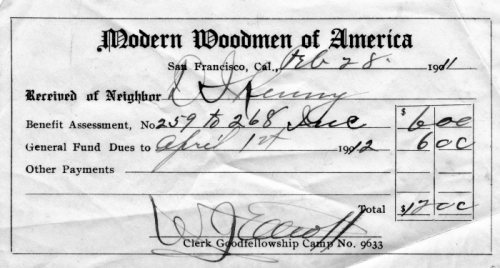 Modern Woodmen of America
San Francisco, Cal., Feb 28 1911
Received of Neighbor
Benefit Assessment, No 259 to 268 Inc $ 6 00
General Fund Dues to April 1st 1912 6 00
Other Payments
Total $12 00
Clerk Goodfellowship Camp No. 9633